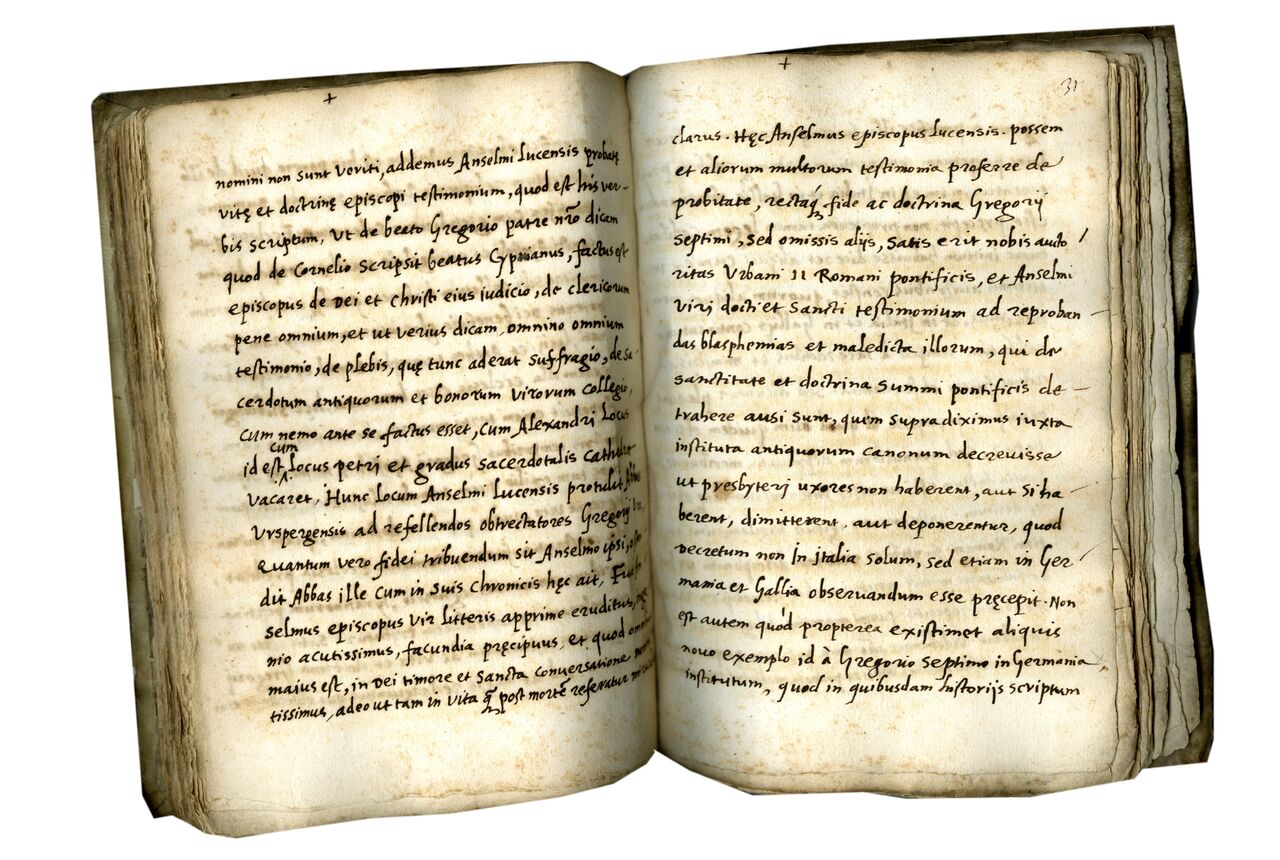 +
nomini non sunt veriti, addemus Anselmi Lucensis probatę
vitę et doctrinę episcopi testimonium, quod est his ver-
bis scriptum, Ut de beato Gregorio patre nr̃o dicam
quod de Cornelio scripsit beatus Cyprianus, factus est
episcopus de Dei et Christi eius iudicio, de clericorum
pene omnium, et ut verius dicam, omnino omnium
testimonio, de plebis, quę tunc aderat suffragio, de sa-
cerdotum antiquorum et bonorum virorum collegio,
cum nemo ante se factus esset, cum Alexandri locus
id est, cum locus petri et gradus sacerdotalis cathedrę
vacaret. Hunc locum Anselmi Lucensis protulit Abbas
Urspergensis ad refellendos obtrectatores Gregorij
Quantum vero fidei tribuendum sit Anselmo ipsi,
dit Abbas ille cum in suis chronicis hęc ait,
selmus episcopus vir litteris apprime eruditus,
nio acutissimus, facundia pręcipuus, et quod
maius est, in Dei timore et sancta conversatione
tissimus, adeo ut tam in vita q̃ post mortẽ referatur
+
31
clarus. Hęc Anselmus episcopus Lucensis. possem
et aliorum multorum testimonia proferre de
probitate, rectaq́; fide ac doctrina Gregorij
septimi, sed omissis alijs, satis erit nobis aucto/
ritas Urbani II Romani pontificis, et Anselmi
viri docti et sancti testimonium ad reproban-
das blasphemias et maledicta illorum, qui de
sanctitate et doctrina summi pontificis de-
trahere ausi sunt, quem supra diximus iuxta
instituta antiquorum canonum decrevisse
ut presbyterj uxores non haberent, aut si ha-
berent, dimitterent, aut deponerentur, quod
decretum non in italia solum, sed etiam in Ger/
mania et Gallia observandum esse pręcepit. Non
est autem quòd propterea existimet aliquis
novo exemplo id à Gregorio septimo in Germania,
institutum, quod in quibusdam historijs scriptum